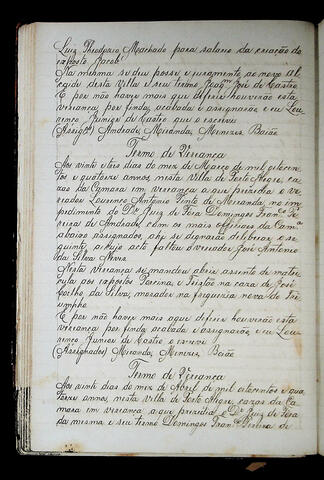 Luiz Theodozio Machado para salario da criação do
exposto Jacob.
Na mesma se deu posse e juramento ao novo Al
caide desta Villa e seu termo Joaqm José de Castro
E por não haver mais que diferir houverão esta
vereança por finda, acabada e assignarão, e eu Lou
renço Junior de Castro que o escrevi
(Assigos) Andrade, Miranda, Menezes, Baião
Termo de Vereança
Aos vinte e tres dias do mez de Março de mil oitocen
tos e quatorze annos, nesta Villa de Porto Alegre, ca
zas da Camara em vereança a que prezidio o ve
reador Lourenço Antonio Pinto de Miranda, no im
pedimento do Dr. Juiz de Fora Domingos Franco Pe
reira de Andrade, com os mais officiaes da Cama
abaixo assignados, ahi se dignarão diliberar o se
guinte, a cujo acto faltou o vereador José Antonio
da Silva Neves
Nesta vereança se mandou abrir assento de matri
cula aos expostos Porcina, e na caza de José
Coelho da Silva, morador na freguezia nova do Tri
umpho.
E por não haver mais que diferir houverão esta
vereança por finda, acabada e assignarão, e eu Lou
renço Junior de Castro o escrevi
(Assignados) Miranda, Menezes, Baião
Termo de Vereança
Aos vinte dias do mez de Abril de mil oitocentos e qua
torze annos, nesta Villa de Porto Alegre, cazas da Ca
mara em vereança a que prezidio o Dr Juiz de Fora
da mesma e seu termo Domingos Franco Pereira de